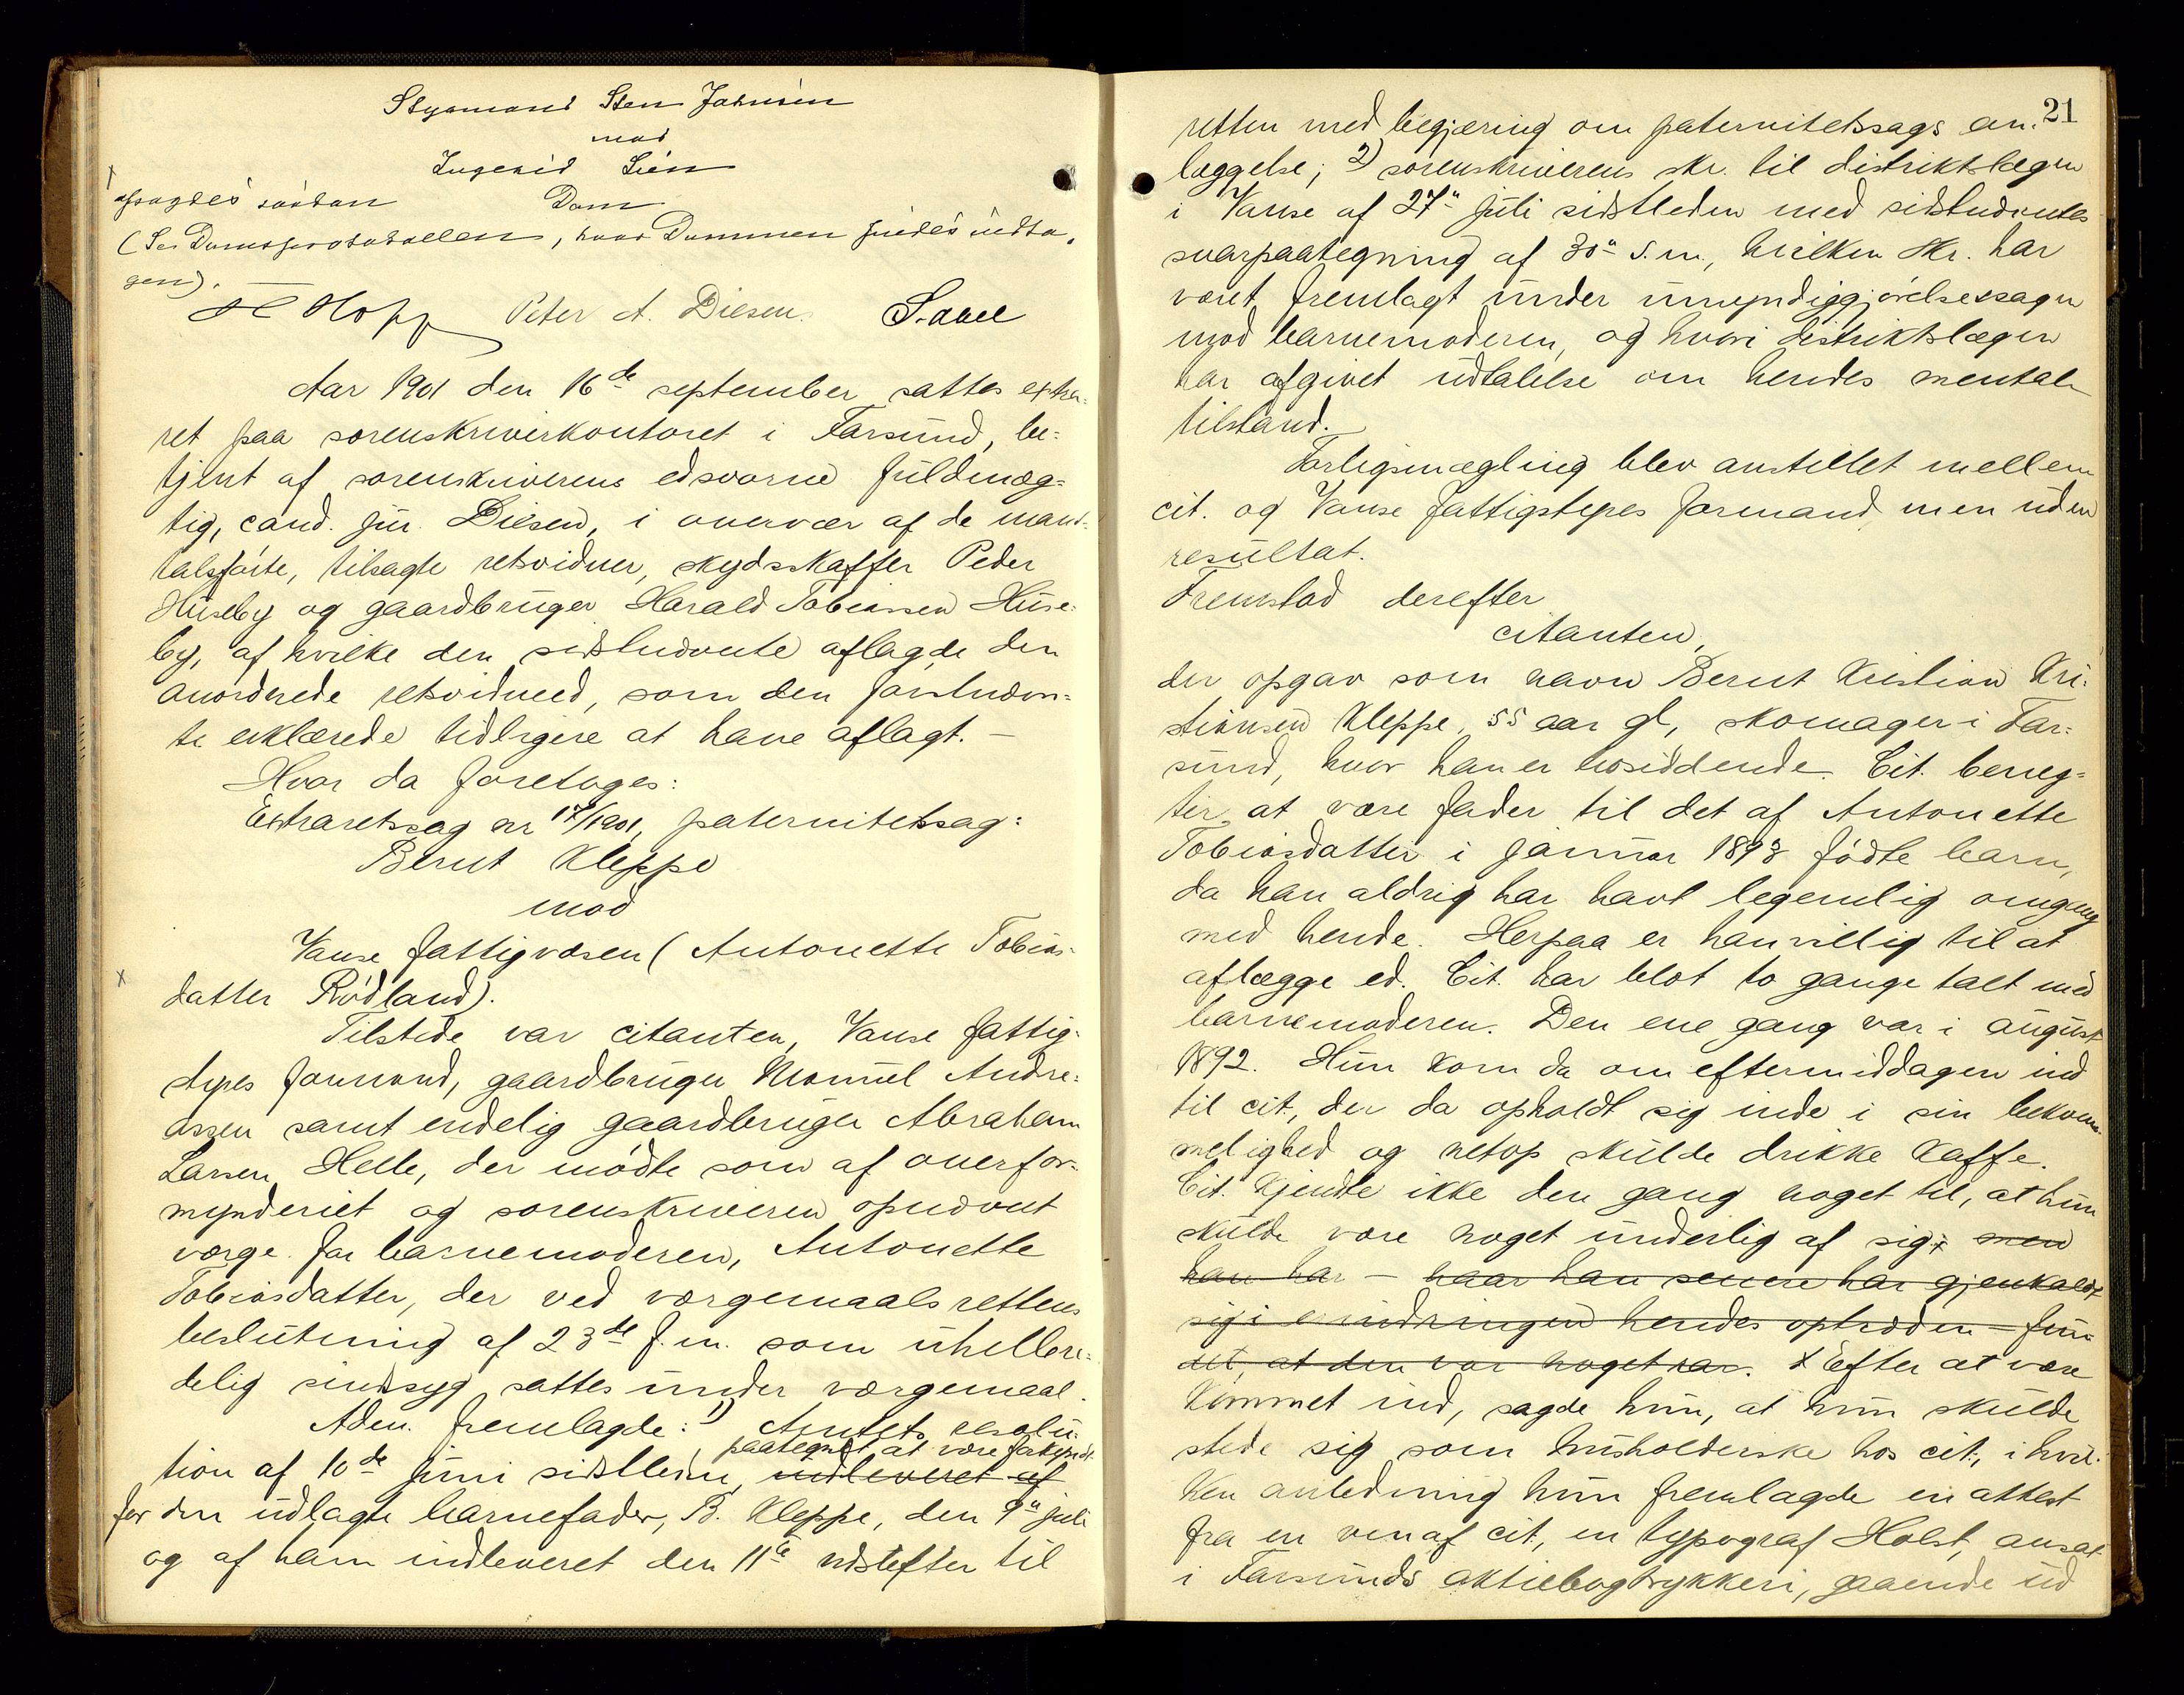 Styrmand Sten Jahnsen
mod
Ingerid Lien
afsagdes saadan Dom
(Se Domsprotokollen, hvor Dommen findes indta-
gen). —
Hopp Peter A. Diesen.
Aar 1901 den 16de september sattes extra-
ret paa sorenskriverkontoret i Farsund, be-
tjent af sorenskriverens edsvorne fuldmæg-
tig, cand. jur. Diesen, i overvær af de mand-
talsførte, tilsagte retsvidner, skydsskaffer Peder
Huseby og gaardbruger Harald Tobiassen Huse-
by, af hvilke den sidstnævnte aflagde den
anordnede retsvidneed, som den førstnævn-
te erklærede tidligere at have aflagt. —
Hvor da foretoges:
Extraretssag nr 17/1901, paternitetssag:
Bernt Kleppe
mod
Vanse fattigvæsen (Antonette Tobias-
x datter Rødland).
Tilstede var citanten, Vanse fattig-
styres formand, gaardbruger Manuel Andre-
assen samt endelig gaardbruger Abraham
Larsen Helle, der mødte som af overfor-
mynderiet og sorenskriveren opnævnt
værge for barnemoderen, Antonette
Tobiasdatter, der ved værgemaalsrettens
beslutning af 23de f.m. som uhelbre-
delig sindsyg sattes under værgemaal.
Adm. fremlagde: 1) Amtets resolu-
paategnet at være forkyndt
tion af 10de juni sidstleden, indleveret af
for den udlagte barnefader, B. Kleppe, den 9" juli
og af ham indleveret den 11te næstefter til
21
retten med begjæring om paternitetssags an-
læggelse; 2) sorenskriverens skr. til distriktslægen
i Vanse af 27" juli sidstleden med sidstnævntes
svarpaategning af 30" s.m., hvilken skr. har
været fremlagt under umyndiggjørelsessagen
mod barnemoderen, og hvori distriktslægen
har afgivet udtalelse om hendes mentale
tilstand.
Forligsmægling blev anstillet mellem
cit. og Vanse fattigstyres formand, men uden
resultat.
Fremstod derefter
citanten,
der opgav som navn Bernt Kristian Kri-
stiansen Kleppe, 55 aar gl, skomager i Far-
sund, hvor han er bosiddende. Cit. beneg-
ter at være fader til det af Antonette
Tobiasdatter i januar 1893 fødte barn,
da han aldrig har havt legemlig omgang
med hende. Herpaa er han villig til at
aflægge ed. Cit. har blot to gange talt med
barnemoderen. Den ene gang var i august
1892. Hun kom da om eftermiddagen ind
til cit, der da opholdt sig inde i sin bekvem-
melighed og netop skulde drikke kaffe.
Cit. kjendte ikke den gang noget til, at hun
skulde være noget underlig af sig; x men
han har — naar han senere har gjenkaldt
sig i erindringen hendes optræden — fun-
det, at den var noget rar. x Efter at være
kommet ind, sagde hun, at hun skulde
stede sig som husholderske hos cit., i hvil-
ken anledning hun fremlagde en attest
fra en ven af cit., en typograf Holst, ansat
i Farsunds aktiebogtrykkeri, gaaende ud